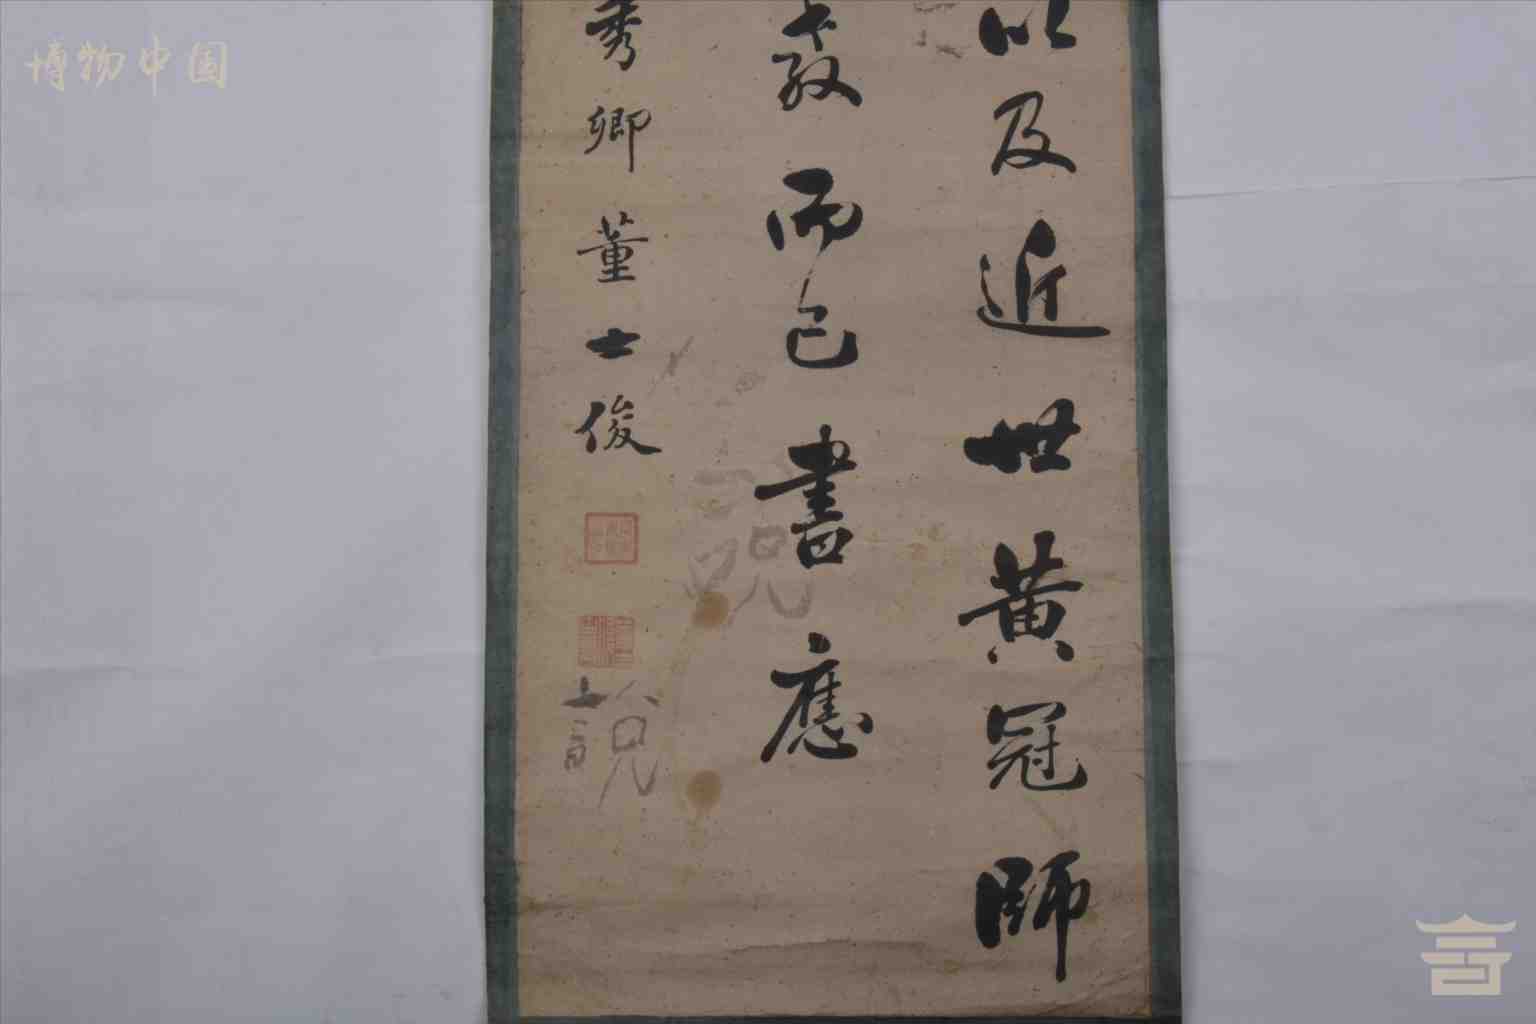 博物中国
以及近世黃冠師
教而已書應
秀卿董士俊